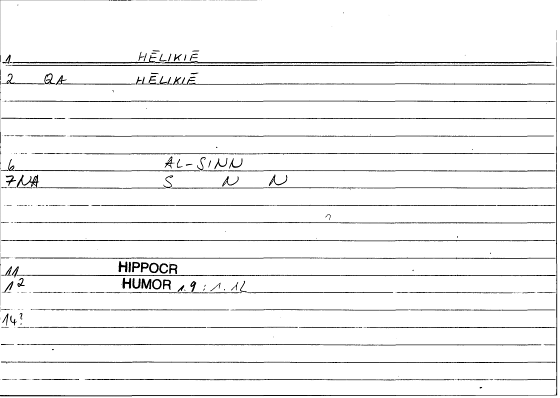 1 HĒLIKIĒ
2 QA HĒLIKIĒ
6 AL-SINN
7NA S N N
11 HIPPOCR
12 HUMOR 1.9 : 1.12
14?